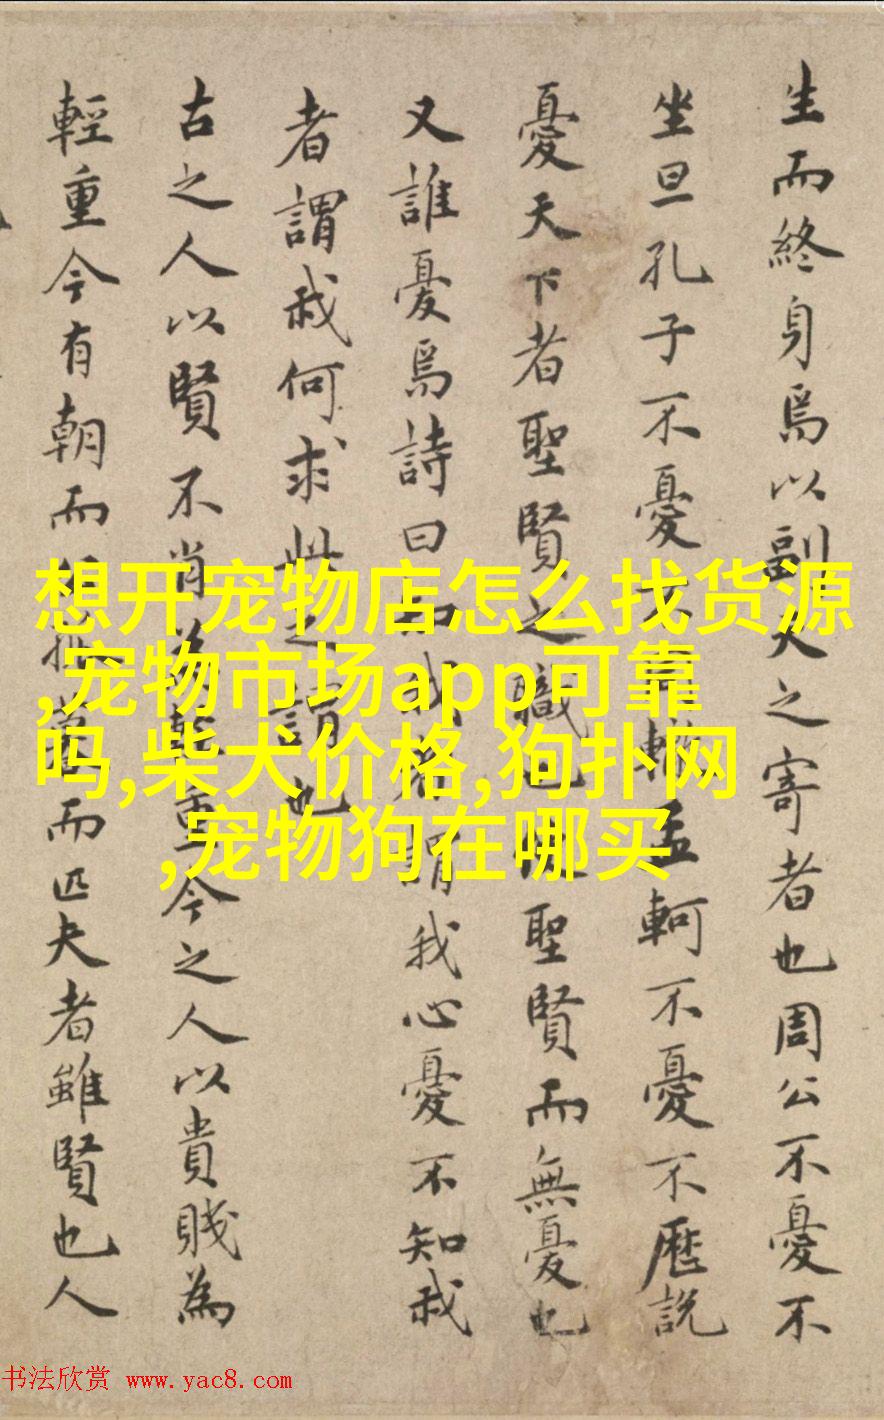 生而終身焉以副天之寄者也周公不憂不
坐旦孔子不憂不轍孟軻不憂不歷說
憂天下者聖賢之職也聖賢而無憂也
又誰憂焉詩曰知我者謂我心憂不知我
者謂我何求此之謂也
古之人以賢不肖為輕重今之人以貴賤為
輕重今有朝而而匹夫者雖賢也人
想开宠物店怎么找货源
,宠物市场app可靠
吗,柴犬价格,狗扑网
,宠物狗在哪买
书法欣赏 www.yac8.com